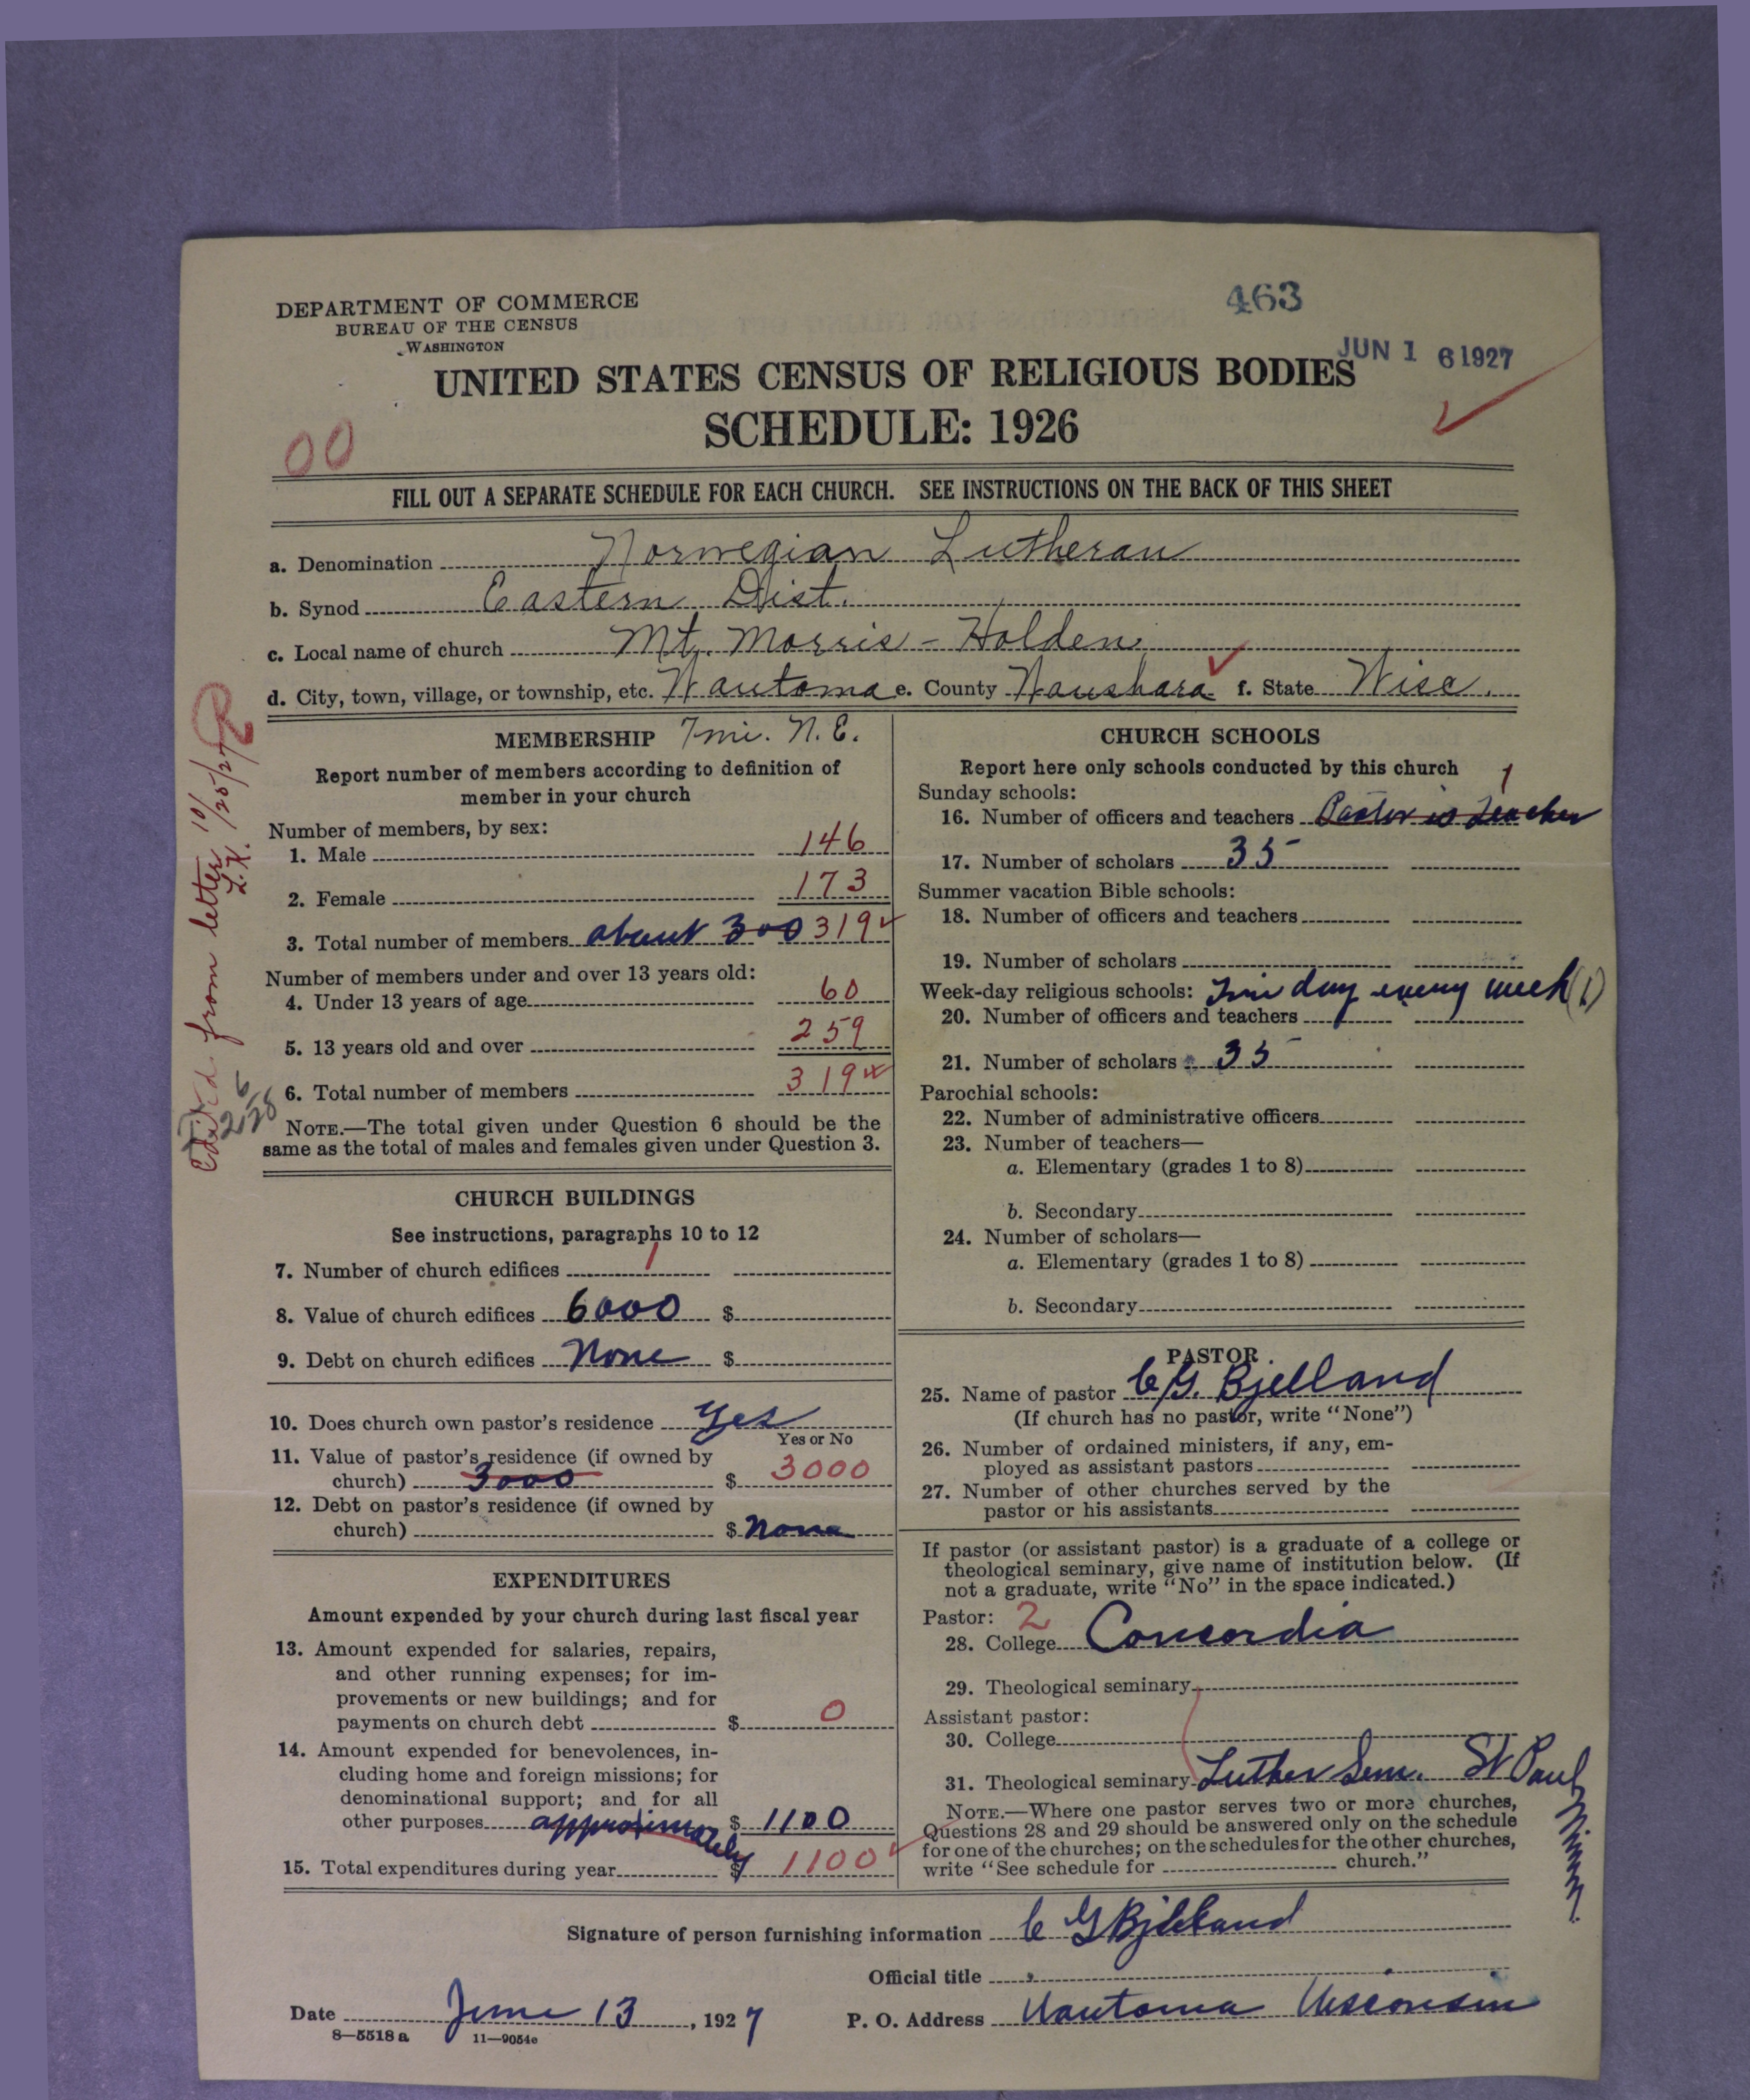 463
DEPARTMENT OF COMMERCE
BUREAU OF THE CENSUS
WASHINGTON
JUN 1 6 1927
UNITED STATES CENSUS OF RELIGIOUS BODIES
SCHEDULE: 1926
00
FILL OUT A SEPARATE SCHEDULE FOR EACH CHURCH. SEE INSTRUCTIONS ON THE BACK OF THIS SHEET
a. Denomination Norwegian Lutheran
b. Synod Eastern Dist.
c. Local name of church Mt. Morris - Holden
d. City, town, village, or township, etc. Wautoma e. County Waushara f. State Wisc.
MEMBERSHIP 7 mi. N.E.
Report number of members according to definition of
member in your church
Number of members, by sex:
1. Male 146
2. Female 173
3. Total number of members about 300 319
Number of members under and over 13 years old:
4. Under 13 years of age 60
5. 13 years old and over 259
6. Total number of members 319
NOTE.—The total given under Question 6 should be the
same as the total of males and females given under Question 3.
from letter 10/25/27
L.K.
CHURCH BUILDINGS
See instructions, paragraphs 10 to 12
7. Number of church edifices 1
8. Value of church edifices 6000 $
9. Debt on church edifices None $
10. Does church own pastor's residence Yes
Yes or No
11. Value of pastor's residence (if owned by
church) 3000 $ 3000
12. Debt on pastor's residence (if owned by
church) $ None
EXPENDITURES
Amount expended by your church during last fiscal year
13. Amount expended for salaries, repairs,
and other running expenses; for im-
provements or new buildings; and for
payments on church debt $ 0
14. Amount expended for benevolences, in-
cluding home and foreign missions; for
denominational support; and for all
other purposes approximately $ 1100
15. Total expenditures during year $ 1100
CHURCH SCHOOLS
Report here only schools conducted by this church
Sunday schools: 1
16. Number of officers and teachers Pastor is Teacher
17. Number of scholars 35
Summer vacation Bible schools:
18. Number of officers and teachers
19. Number of scholars
Week-day religious schools: day every week (1)
20. Number of officers and teachers
21. Number of scholars 35
Parochial schools:
22. Number of administrative officers
23. Number of teachers—
a. Elementary (grades 1 to 8)
b. Secondary
24. Number of scholars—
a. Elementary (grades 1 to 8)
b. Secondary
PASTOR
25. Name of pastor C. G. Bjelland
(If church has no pastor, write "None")
26. Number of ordained ministers, if any, em-
ployed as assistant pastors
27. Number of other churches served by the
pastor or his assistants
If pastor (or assistant pastor) is a graduate of a college or
theological seminary, give name of institution below. (If
not a graduate, write "No" in the space indicated.)
Pastor: 2
28. College Concordia
29. Theological seminary
Assistant pastor:
30. College
31. Theological seminary Luther Sem. St Paul Minn.
NOTE.—Where one pastor serves two or more churches,
Questions 28 and 29 should be answered only on the schedule
for one of the churches; on the schedules for the other churches,
write "See schedule for church."
Signature of person furnishing information C G Bjelland
Official title
Date June 13, 1927 P. O. Address Wautoma Wisconsin
8—5518 a 11—9054e